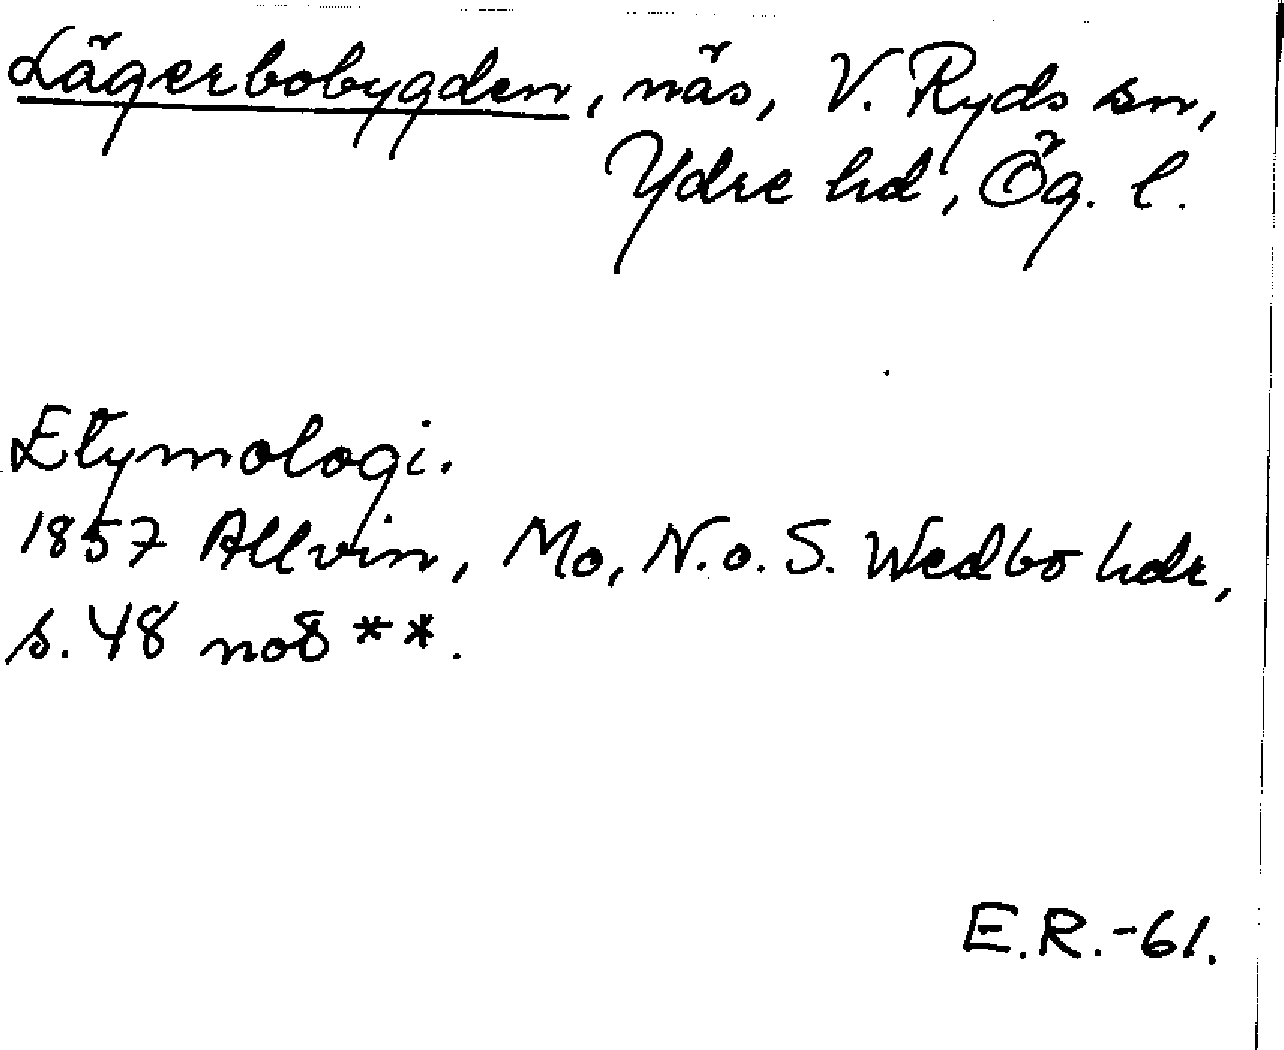 Lägerbobygden, näs, V. Ryds sn,
Ydre hd, Ög. l.
Etymologi.
1857 Allvin, Mo, N. o. S. Wedbo hdr,
s. 48 not **.
E.R.-61.